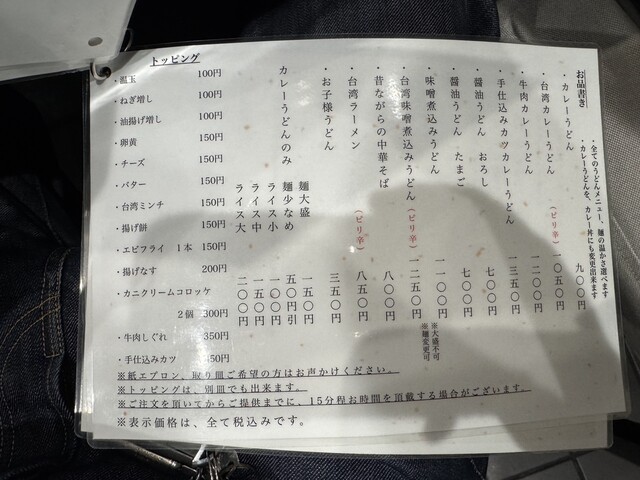 お品書き
・全てのうどんメニュー、麺の温かさ選べます
・カレーうどんを、カレー丼にも変更出来ます
・カレーうどん 九〇〇円
・台湾カレーうどん (ピリ辛) 一〇五〇円
・牛肉カレーうどん 一二〇〇円
・手仕込みカツカレーうどん 一三五〇円
・醤油うどん おろし 七〇〇円
・醤油うどん たまご 七〇〇円
・味噌煮込みうどん 一一〇〇円
※大盛不可
※麺変更可
・台湾味噌煮込みうどん (ピリ辛) 一二五〇円
・昔ながらの中華そば 八〇〇円
・台湾ラーメン (ピリ辛) 八五〇円
・お子様うどん 三五〇円
カレーうどんのみ 麺大盛 一五〇円
麺少なめ 五〇円引
ライス小 一〇〇円
ライス中 一五〇円
ライス大 二〇〇円
トッピング
・温玉 100円
・ねぎ増し 100円
・油揚げ増し 100円
・卵黄 150円
・チーズ 150円
・バター 150円
・台湾ミンチ 150円
・揚げ餅 150円
・エビフライ 1本 150円
・揚げなす 200円
・カニクリームコロッケ
2個 300円
・牛肉しぐれ 350円
・手仕込みカツ
※紙エプロン、取り皿ご希望の方はお声かけください。
※トッピングは、別皿でも出来ます。
※ご注文を頂いてからご提供までに、15分程お時間を頂戴する場合がございます。
※表示価格は、全て税込みです。